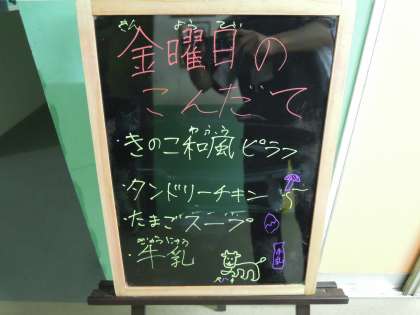 きんようび
金曜日の
こんだて
わふう
・きのこ和風ピラフ
・タンドリーチキン
・たまごスープ
ぎゅうにゅう
・牛乳